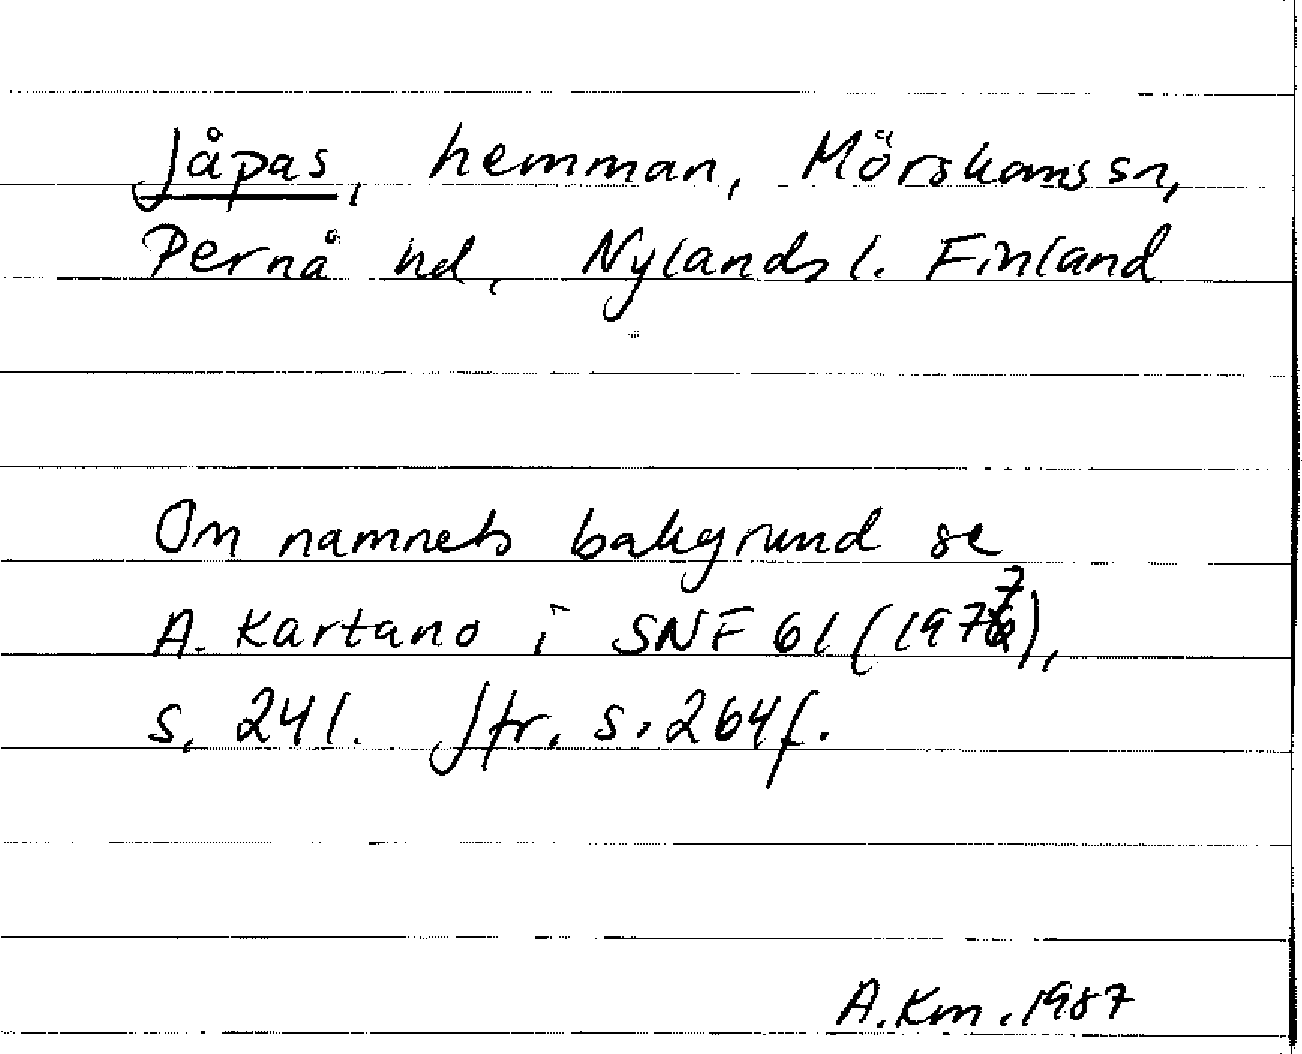 Jåpas, hemman, Mörskoms sn,
Pernå hd, Nylands l. Finland
Om namnets bakgrund se
A. Kartano i SNF 61 (1977),
s. 241. Jfr. s. 264 f.
A. Km. 1987